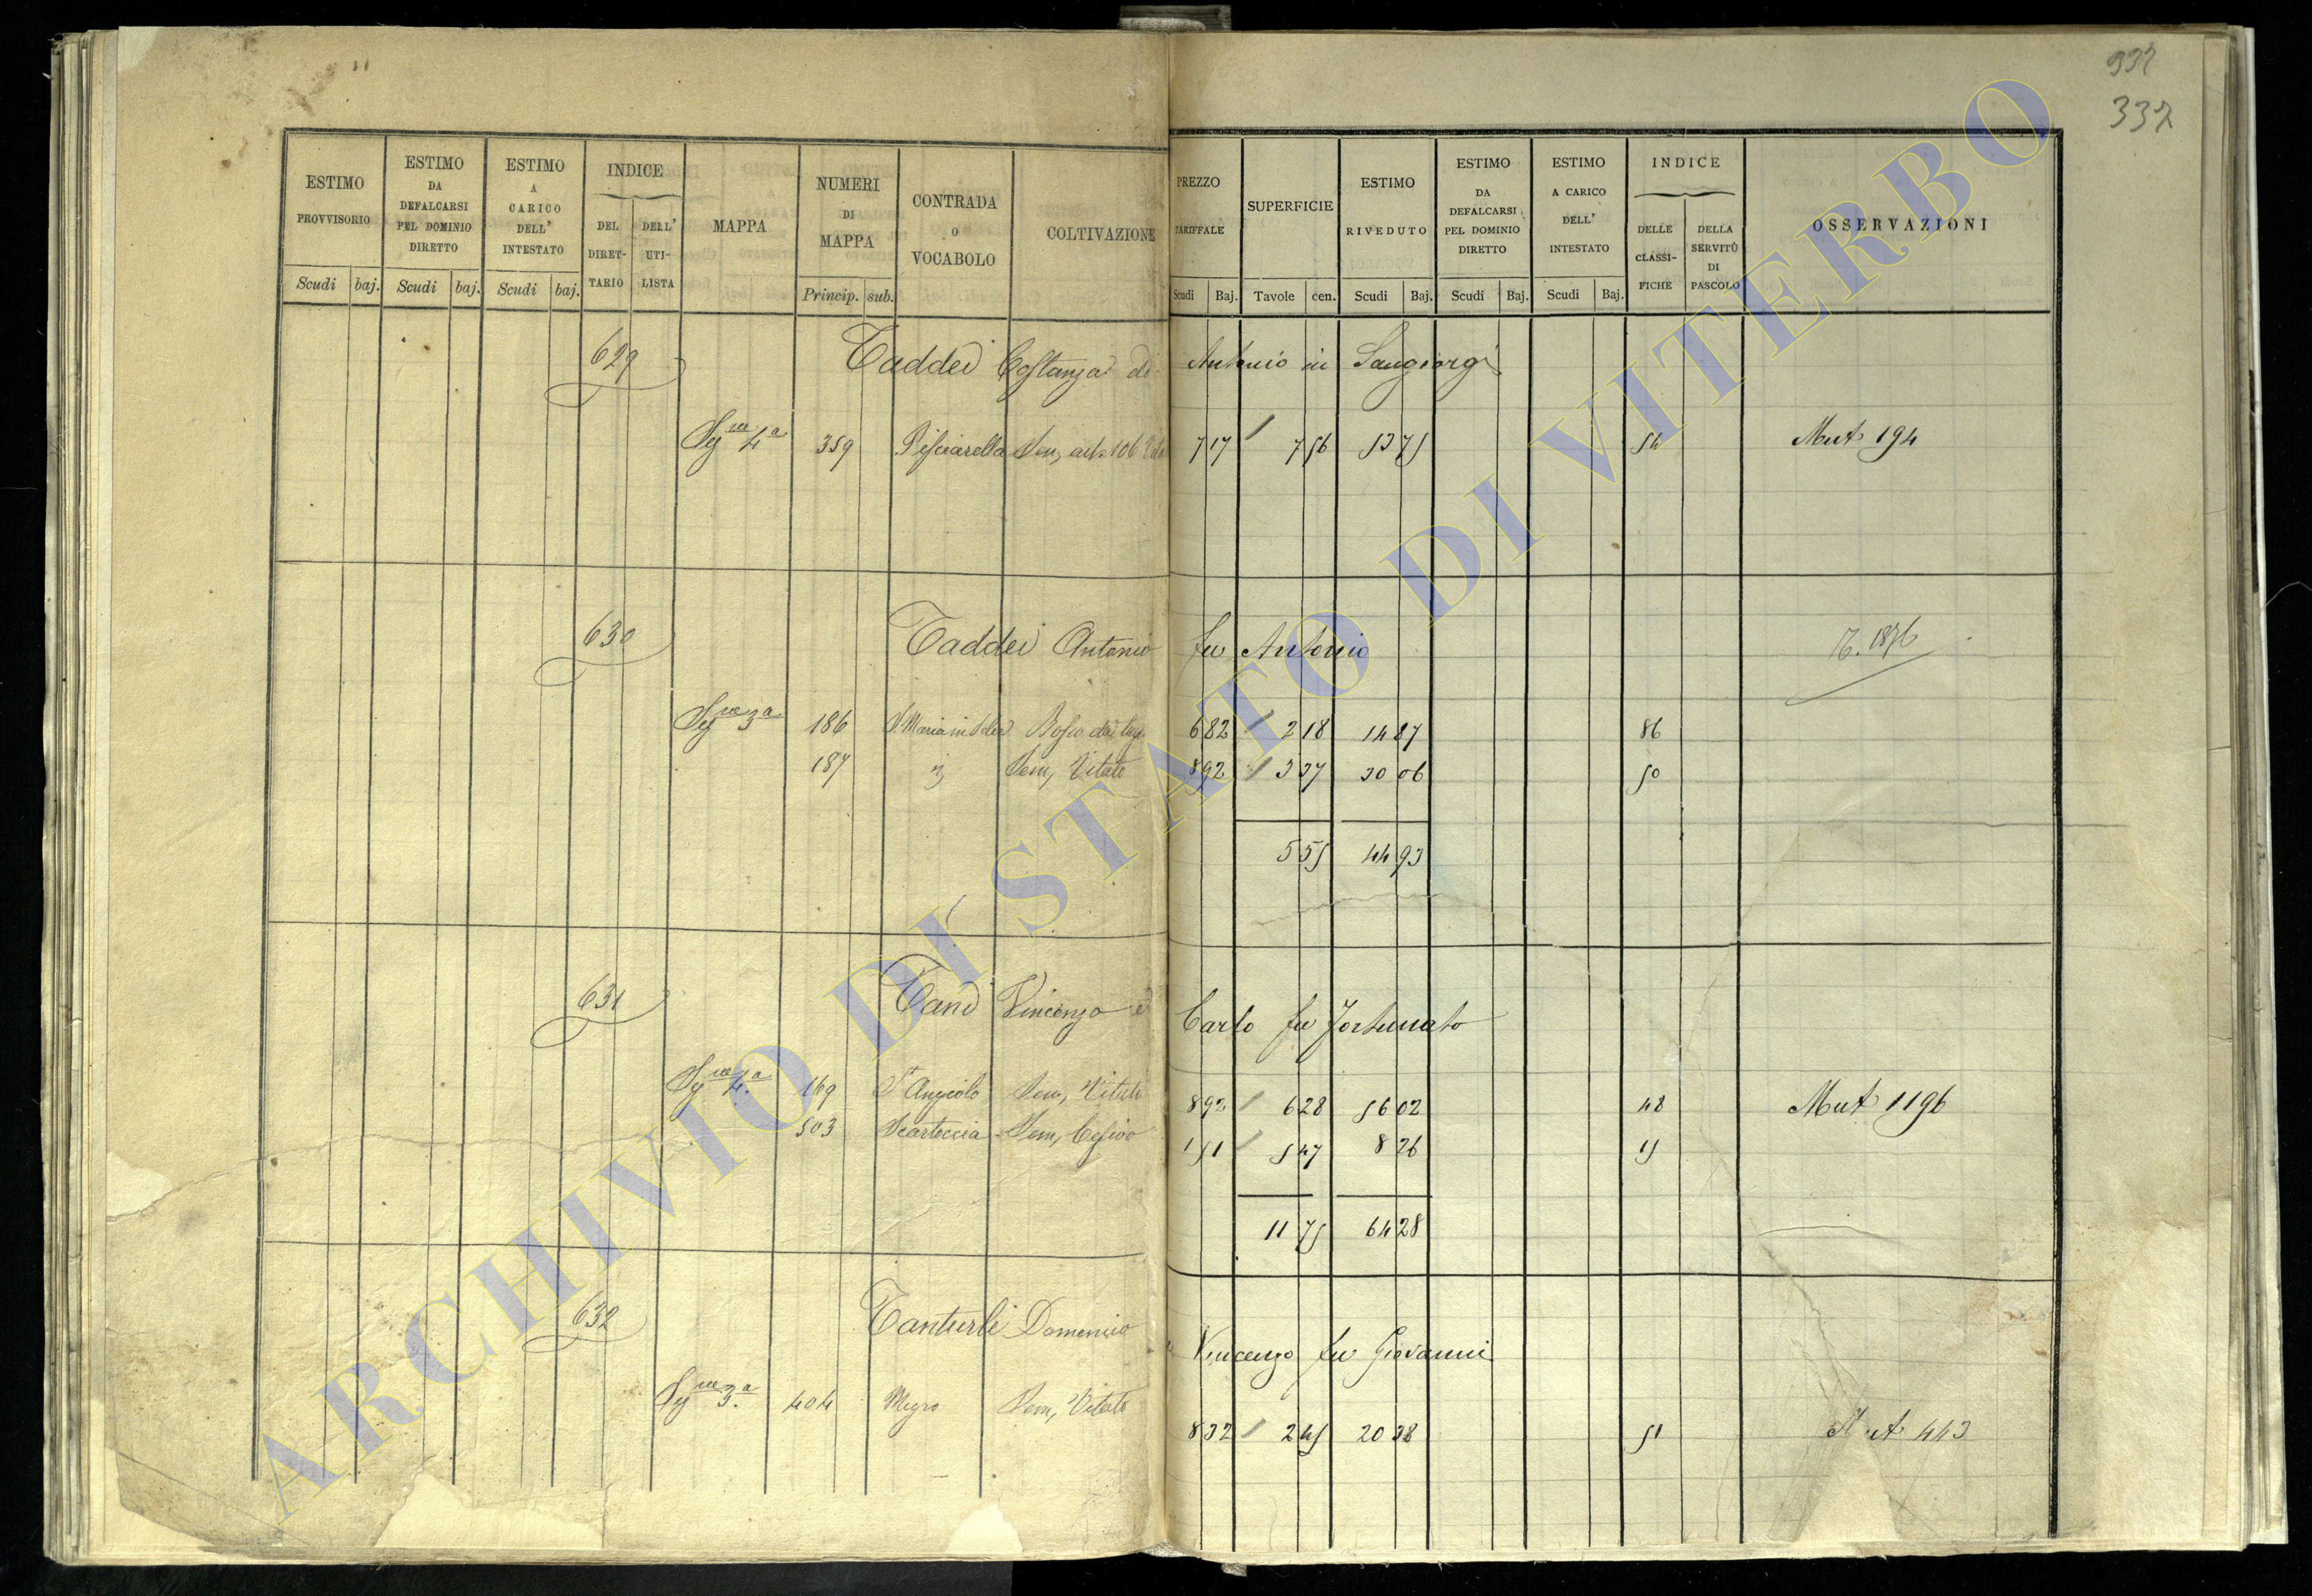 332
332
ESTIMO PROVVISORIO
ESTIMO DA DEFALCARSI PEL DOMINIO DIRETTO
ESTIMO A CARICO DELL' INTESTATO
INDICE
DEL DIRET-TARIO
DELL' UTI-LISTA
MAPPA
NUMERI DI MAPPA
CONTRADA O VOCABOLO
COLTIVAZIONE
PREZZO TARIFFALE
SUPERFICIE
ESTIMO RIVEDUTO
ESTIMO DA DEFALCARSI PEL DOMINIO DIRETTO
ESTIMO A CARICO DELL' INTESTATO
INDICE
DELLE CLASSI-FICHE
DELLA SERVITÙ DI PASCOLO
OSSERVAZIONI
Scudi baj. Scudi baj. Scudi baj. Princip. sub. Scudi Baj. Tavole cen. Scudi Baj. Scudi Baj. Scudi Baj.
629 Taddei Costanza di Antonio in Sangiorgi
4a 359 Pisciarella Sem, 106 7 17 7 56 53 75 54 Mut 194
630 Taddei Antonio fu Antonio 1876
3a 186 S. Maria in Bosco 6 82 2 18 14 87 86
187 Sem, Vitato 8 92 3 37 30 06 50
5 55 44 93
631 Tani Vincenzo e Carlo fu Fortunato
4a 169 St Angiolo Sem, Vitato 8 92 6 28 56 02 48 Mut 1196
503 Scartoccia Sem, 1 51 5 47 8 26 15
11 75 64 28
632 Tanturli Domenico Vincenzo fu Giovanni
3a 404 Sem, Vitato 8 32 2 45 20 38 51 Mut 443
ARCHIVIO DI STATO DI VITERBO